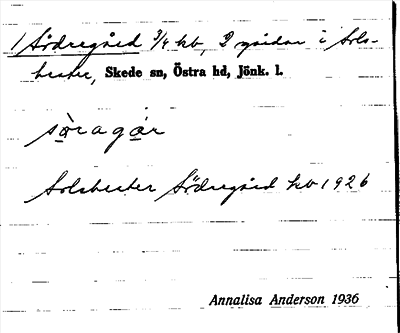 1 Södregård 3/4 hb, 2 gårdar i Sols-
berter, Skede sn, Östra hd, Jönk. l.
sὰragɑ́r
Solsberter Södregård hb 1926
Annalisa Anderson 1936